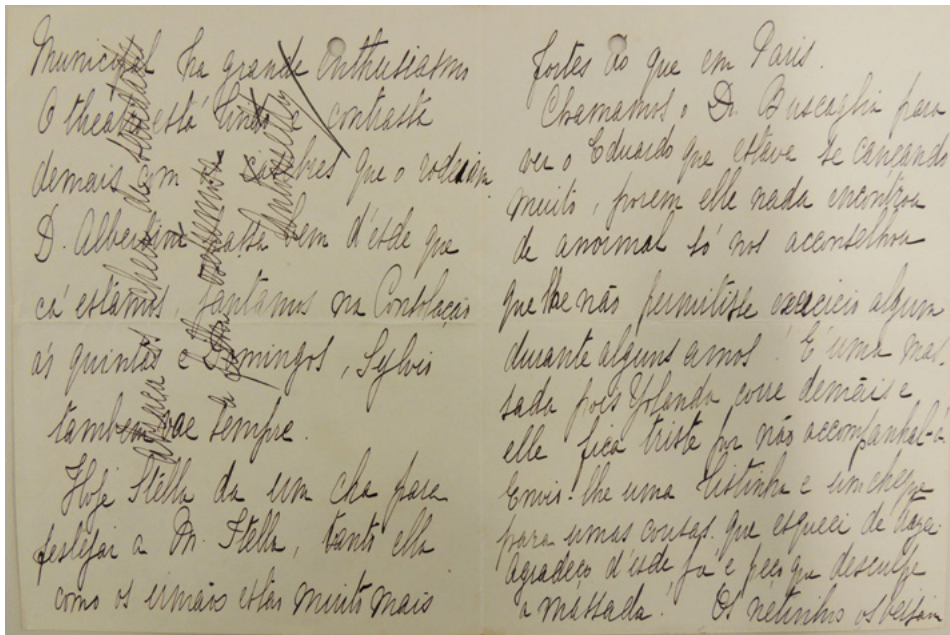 Municipal ha grande enthusiasmo
O theatro está lindo e contrasta
demais com os que o rodeiam
D. Albertina passa bem d'esde que
cá estamos, jantamos na Consolação
ás quintas e Domingos, Sylvio
tambem vae sempre.
Hoje Stella da um cha para
festejar a Stella, tanto ella
como os irmãos estão muito mais
fortes do que em Paris.
Chamamos o Dr. Buscaglia para
ver o Eduardo que estava se cançando
muito, porem elle nada encontrou
de anormal só nos aconselhou
que lhe não permitisse exercicio algum
durante alguns annos! É uma mas-
sada pois Yolanda corre demais e
elle fica triste por não accompanhal-a
Envio-lhe uma listinha e um cheque
para umas cousas que esqueci de
Agradeço d'esde já e peço que desculpe
a massada! Os netinhos os beijam
a
saudades